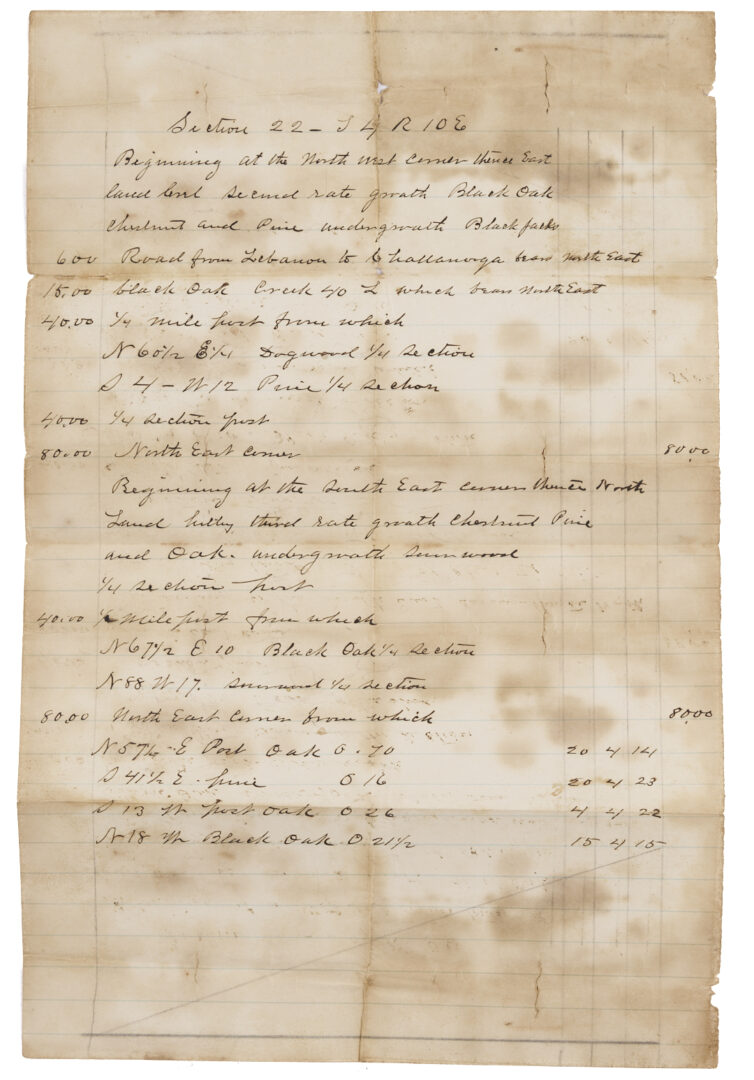 Section 22 - T 4 R 10 E
Beginning at the North west corner thence East
land level second rate growth Black Oak
Chestnut and Pine undergrowth Black jacks
6.00 Road from Lebanon to Chattanooga bears north East
15.00 black Oak Creek 40 L which bears North East
40.00 1/4 mile post from which
N 60 1/2 E 14 Dogwood 1/4 section
S 4 - W 12 Pine 1/4 section
40.00 1/4 section post
80.00 North East corner 80.00
Beginning at the south East corner thence North
Land hilly third rate growth Chestnut Pine
and Oak. undergrowth sourwood
1/4 section post
40.00 mile post from which
N 67 1/2 E 10 Black Oak 1/4 section
N 88 W 17. sourwood 1/4 section
80.00 North East corner from which 80.00
E Post Oak 0.70 20 4 14
S 41 1/2 E - pine 0 16 20 4 23
S 13 W post Oak 0 26 4 4 22
N 18 W Black Oak 0 21 1/2 15 4 15